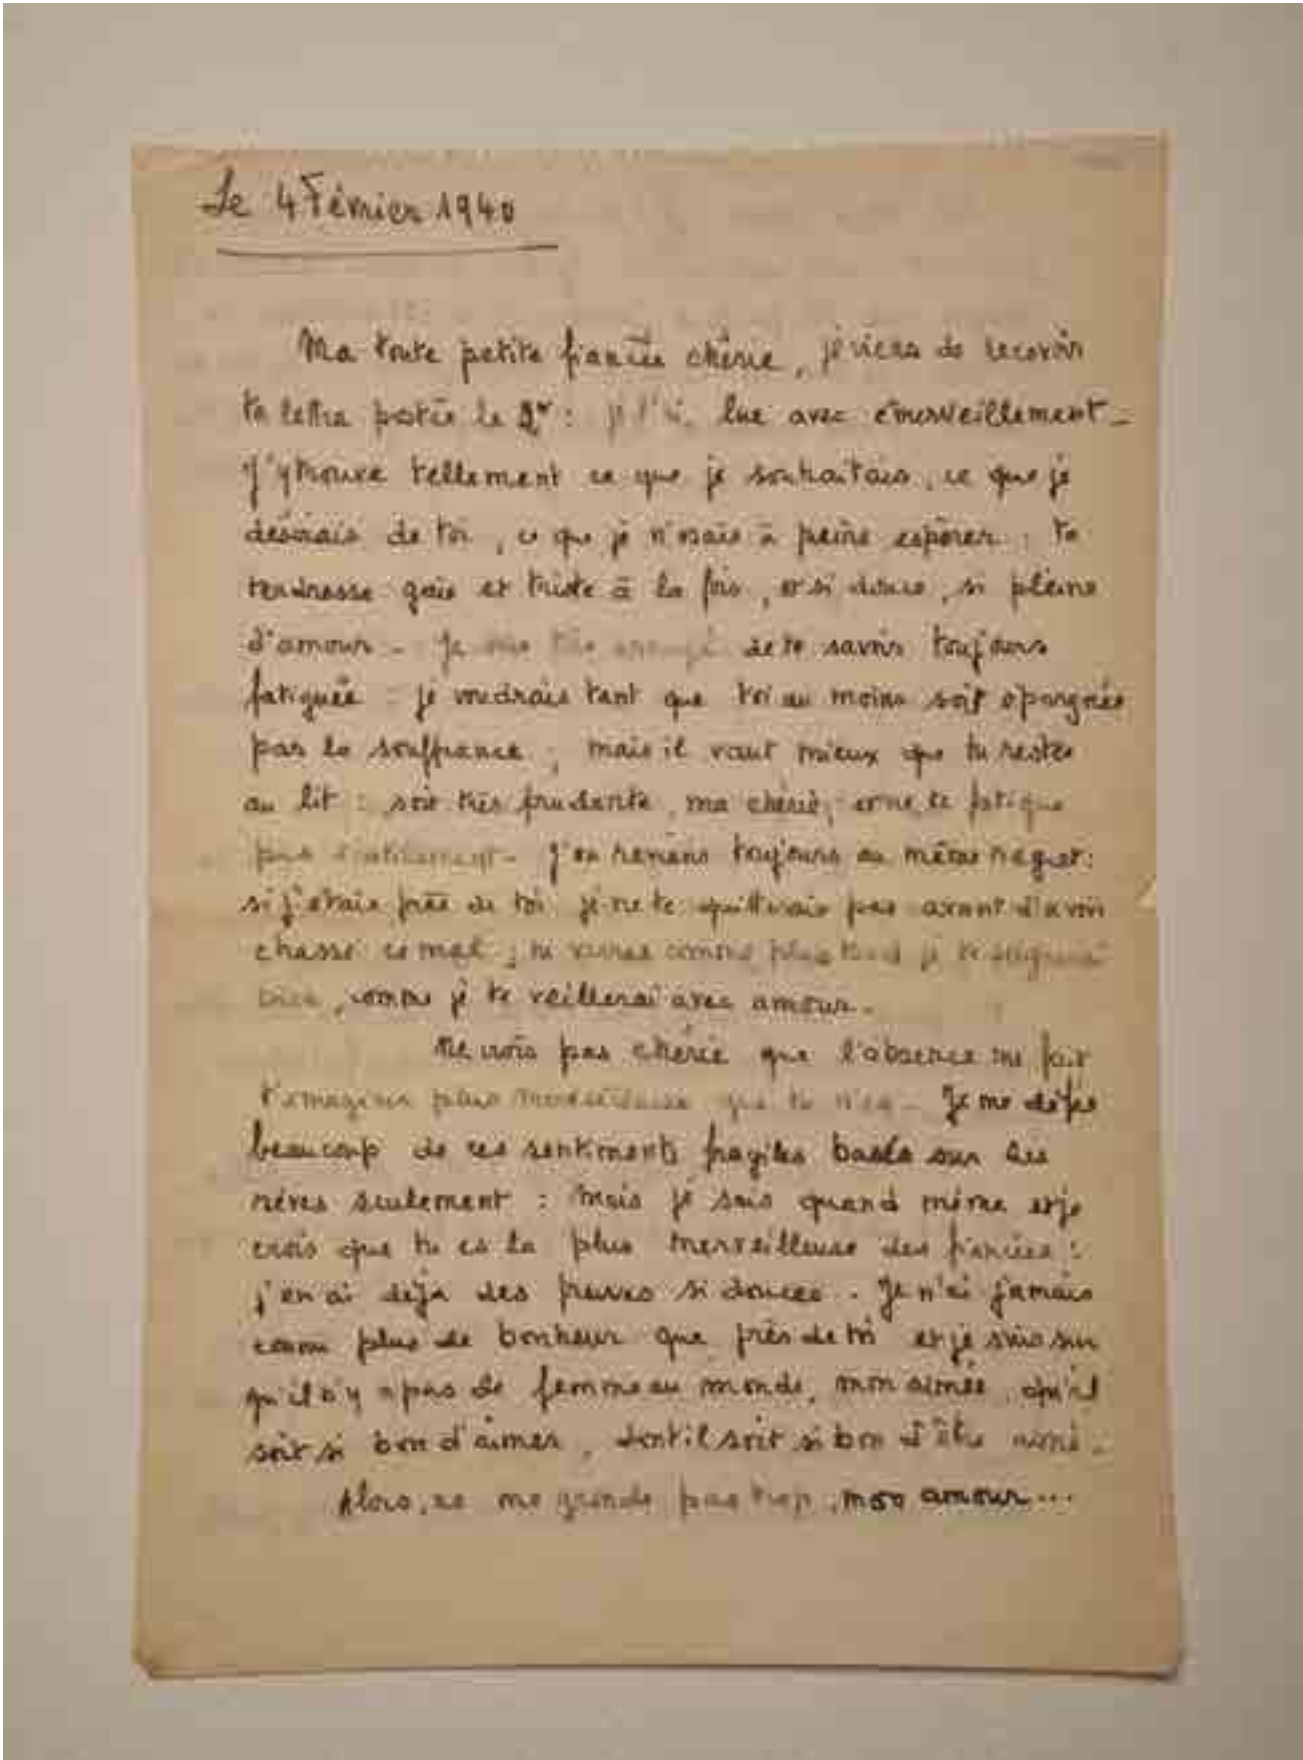 Le 4 Février 1940
Ma toute petite fiancée chérie, je viens de recevoir
ta lettre postée le 2 : je l'ai lue avec émerveillement -
J'y trouve tellement ce que je souhaitais, ce que je
désirais de toi, ce que je n'osais à peine espérer : ta
tendresse gaie et triste à la fois, et si douce, si pleine
d'amour - Je suis très de te savoir toujours
fatiguée : je voudrais tant que toi au moins soit épargnée
par la souffrance ; mais il vaut mieux que tu restes
au lit : soit très prudente, ma chérie, et ne te fatigue
pas inutilement - J'en reviens toujours au même regret :
si j'étais près de toi je ne te quitterais pas avant d'avoir
chassé ce mal ; tu verras comme plus tard je te soignerai
bien, comme je te veillerai avec amour -
Ne crois pas chérie que l'absence me fait
t'imaginer plus merveilleuse que tu n'es - Je me défie
beaucoup de ces sentiments fragiles basés sur les
rêves seulement : Mais je sais quand même et je
crois que tu es la plus merveilleuse des fiancées :
j'en ai déjà des preuves si douces - Je n'ai jamais
connu plus de bonheur que près de toi et je suis sur
qu'il n'y a pas de femme au monde, mon aimée, qu'il
soit si bon d'aimer, dont il soit si bon d'être aimé -
Alors, ne me gronde pas trop, mon amour ...